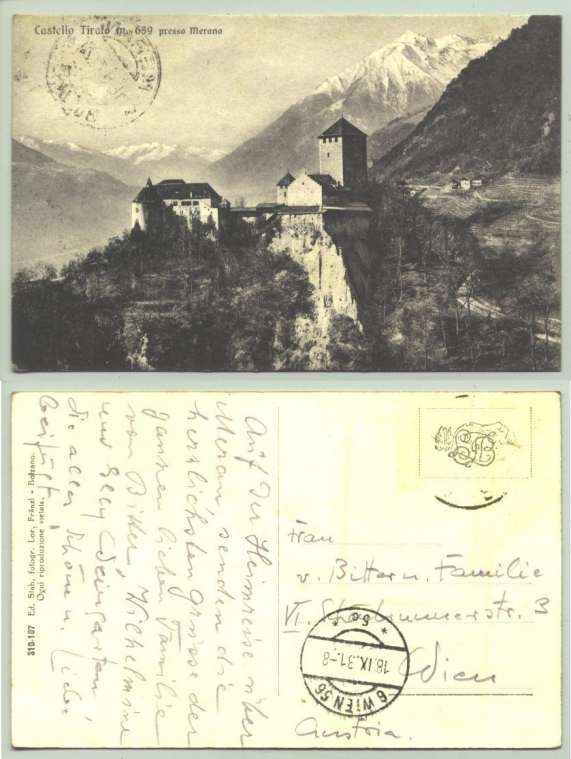 Castello Tirolo m. 639 presso Merano
Auf der Heimreise über
Meran, senden die
herzlichsten Grüsse der
ganzen lieben Familie
von Bitter, Wilhelmine
und Elly Weingarten,
die alles Schöne u. Liebe
beifügt.
319-107 Ed. Stab. fotogr. Lor. Fränzl - Bolzano.
Ogni riproduzione vietata.
Frau
v. Bitter u. Familie
VI. 3
Wien
Austria.
6 WIEN 56
18.IX.31.-8
* 6c